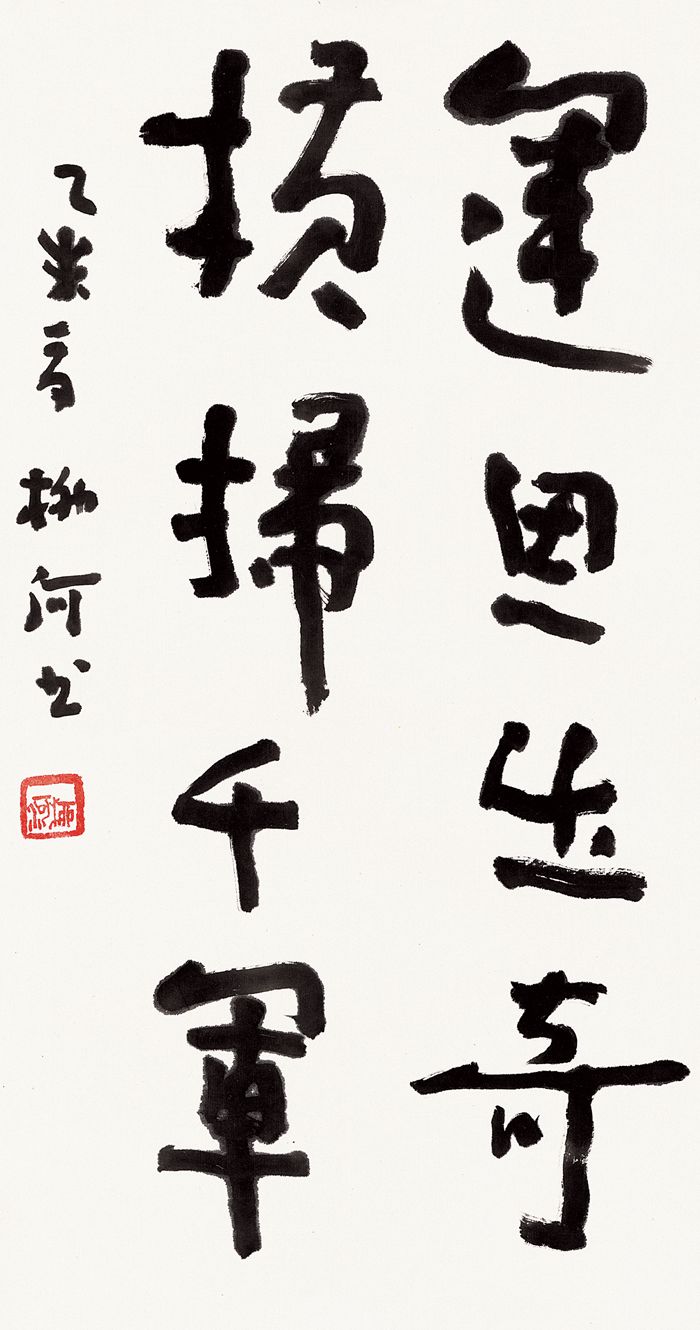 運思出奇
橫掃千軍
乙未 柳河书
柳河